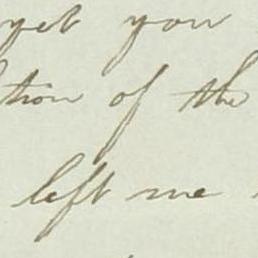 yet you
tion of the
left me